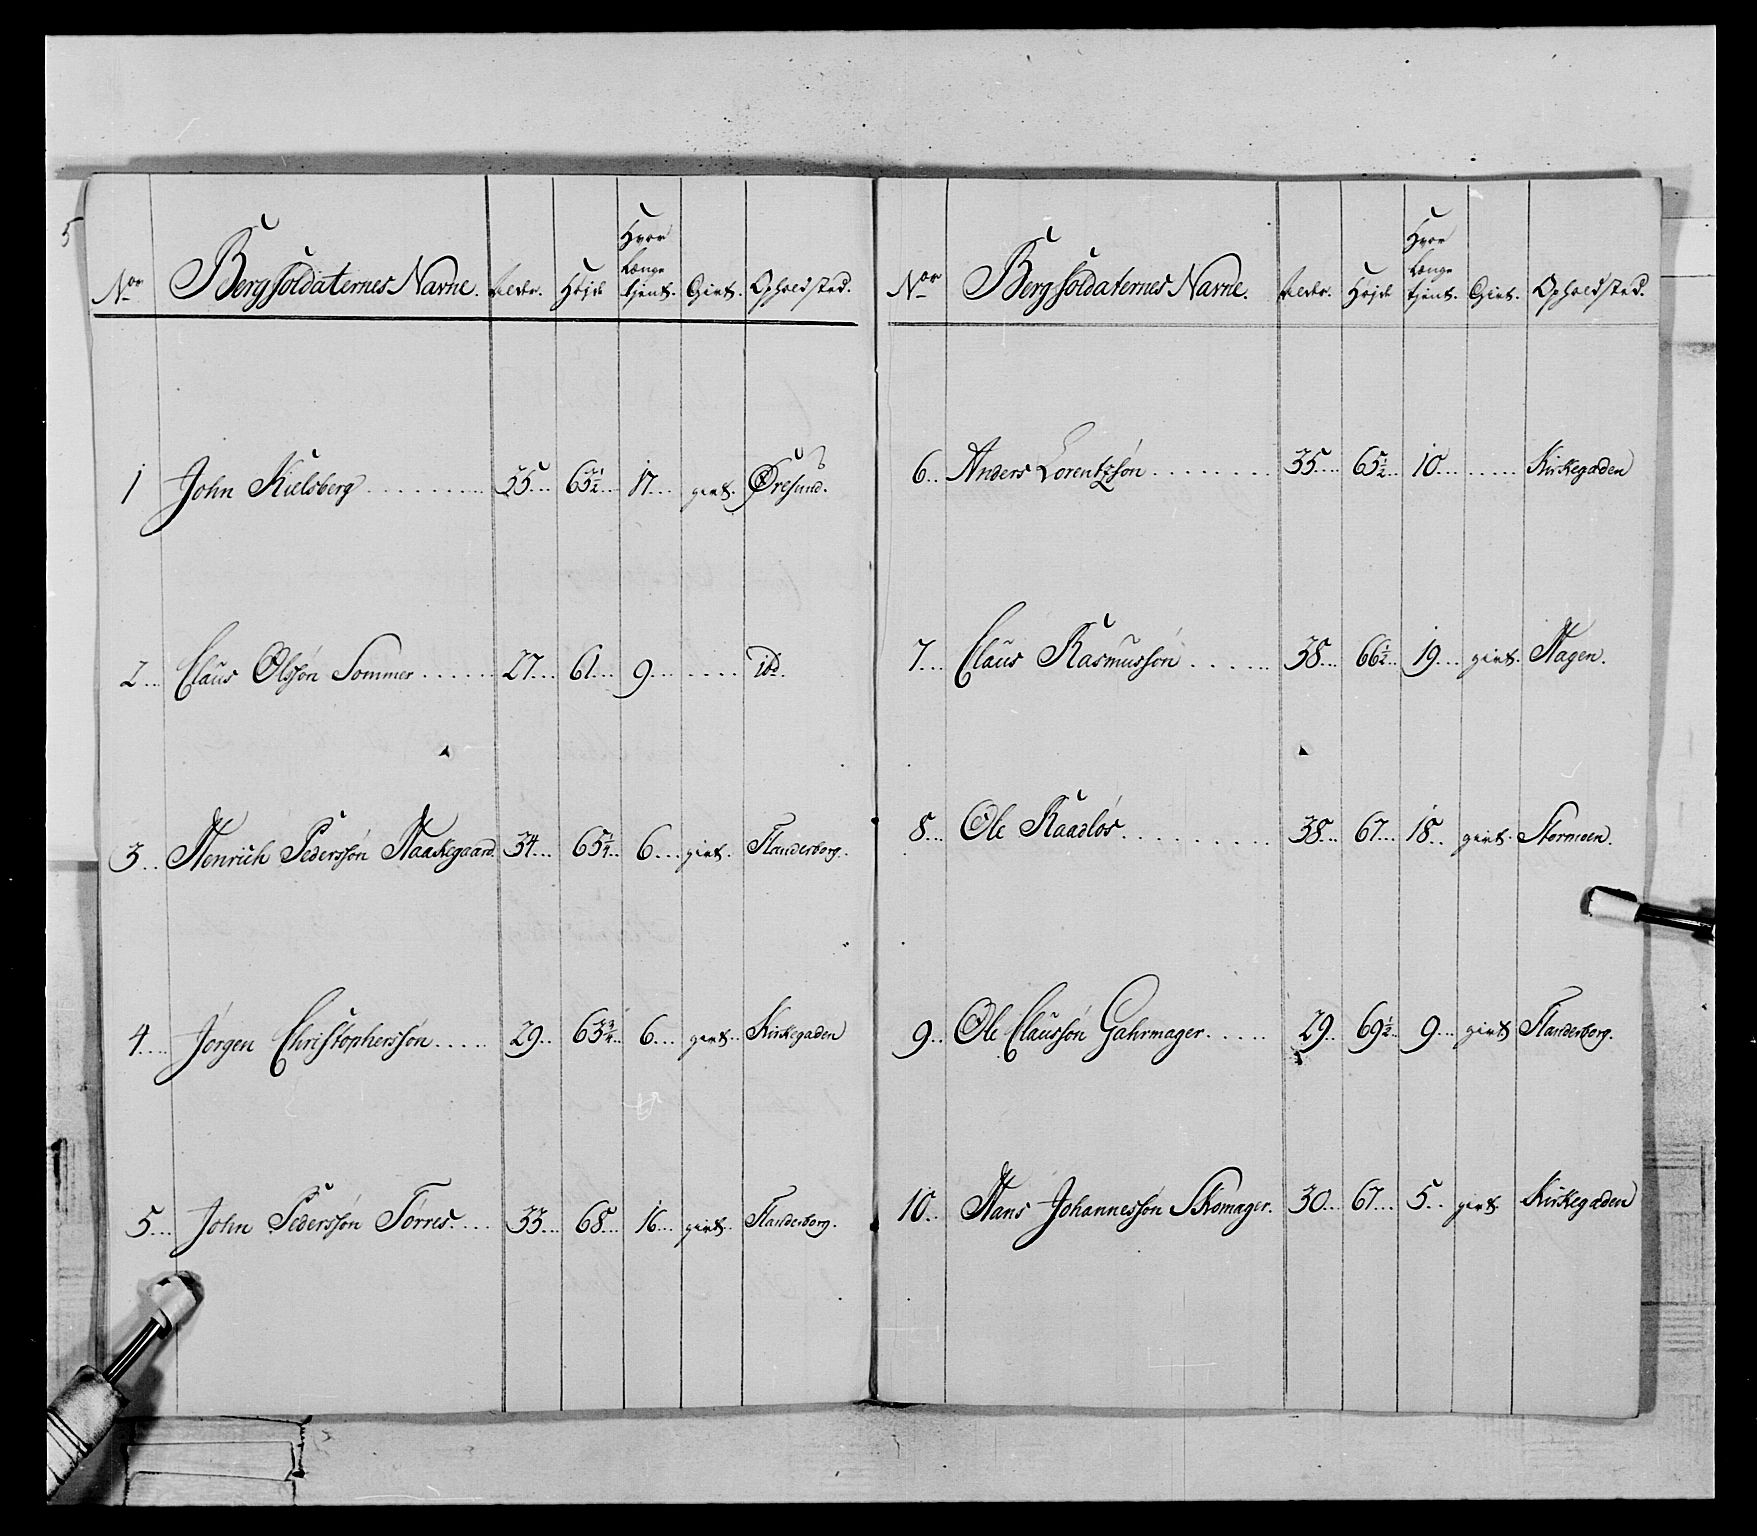 5
No Bergsoldaternes Navne. Alder. Højde Hvor længe tjent. Givt. Opholdsted.
1 John Kielsberg 35 63½ 17 givt. Øresund.
2 Claus Olssøn Sommer 27 61 9 id.
3 Henrich Pederssøn Haaskegaard 34 65¼ 6 givt. Flanderborg.
4 Jørgen Christopherssøn 29 63¾ 6 givt. Kirkegaden
5 John Pederssøn Tørres 33 68 16 givt. Flanderborg.
No Bergsoldaternes Navne. Alder. Højde Hvor længe tjent. Givt. Opholdsted.
6 Anders Lorentzsøn 35 65½ 10 Kirkegaden
7 Claus Rasmussøn 38 66½ 19 givt. Hagen.
8 Ole Raadløs 38 67 18 givt. Stormoen.
9 Ole Claussøn Gahrmager 29 69½ 9 givt Flanderborg.
10 Hans Johannessøn Skomager. 30 67 5 givt Kirkegaden